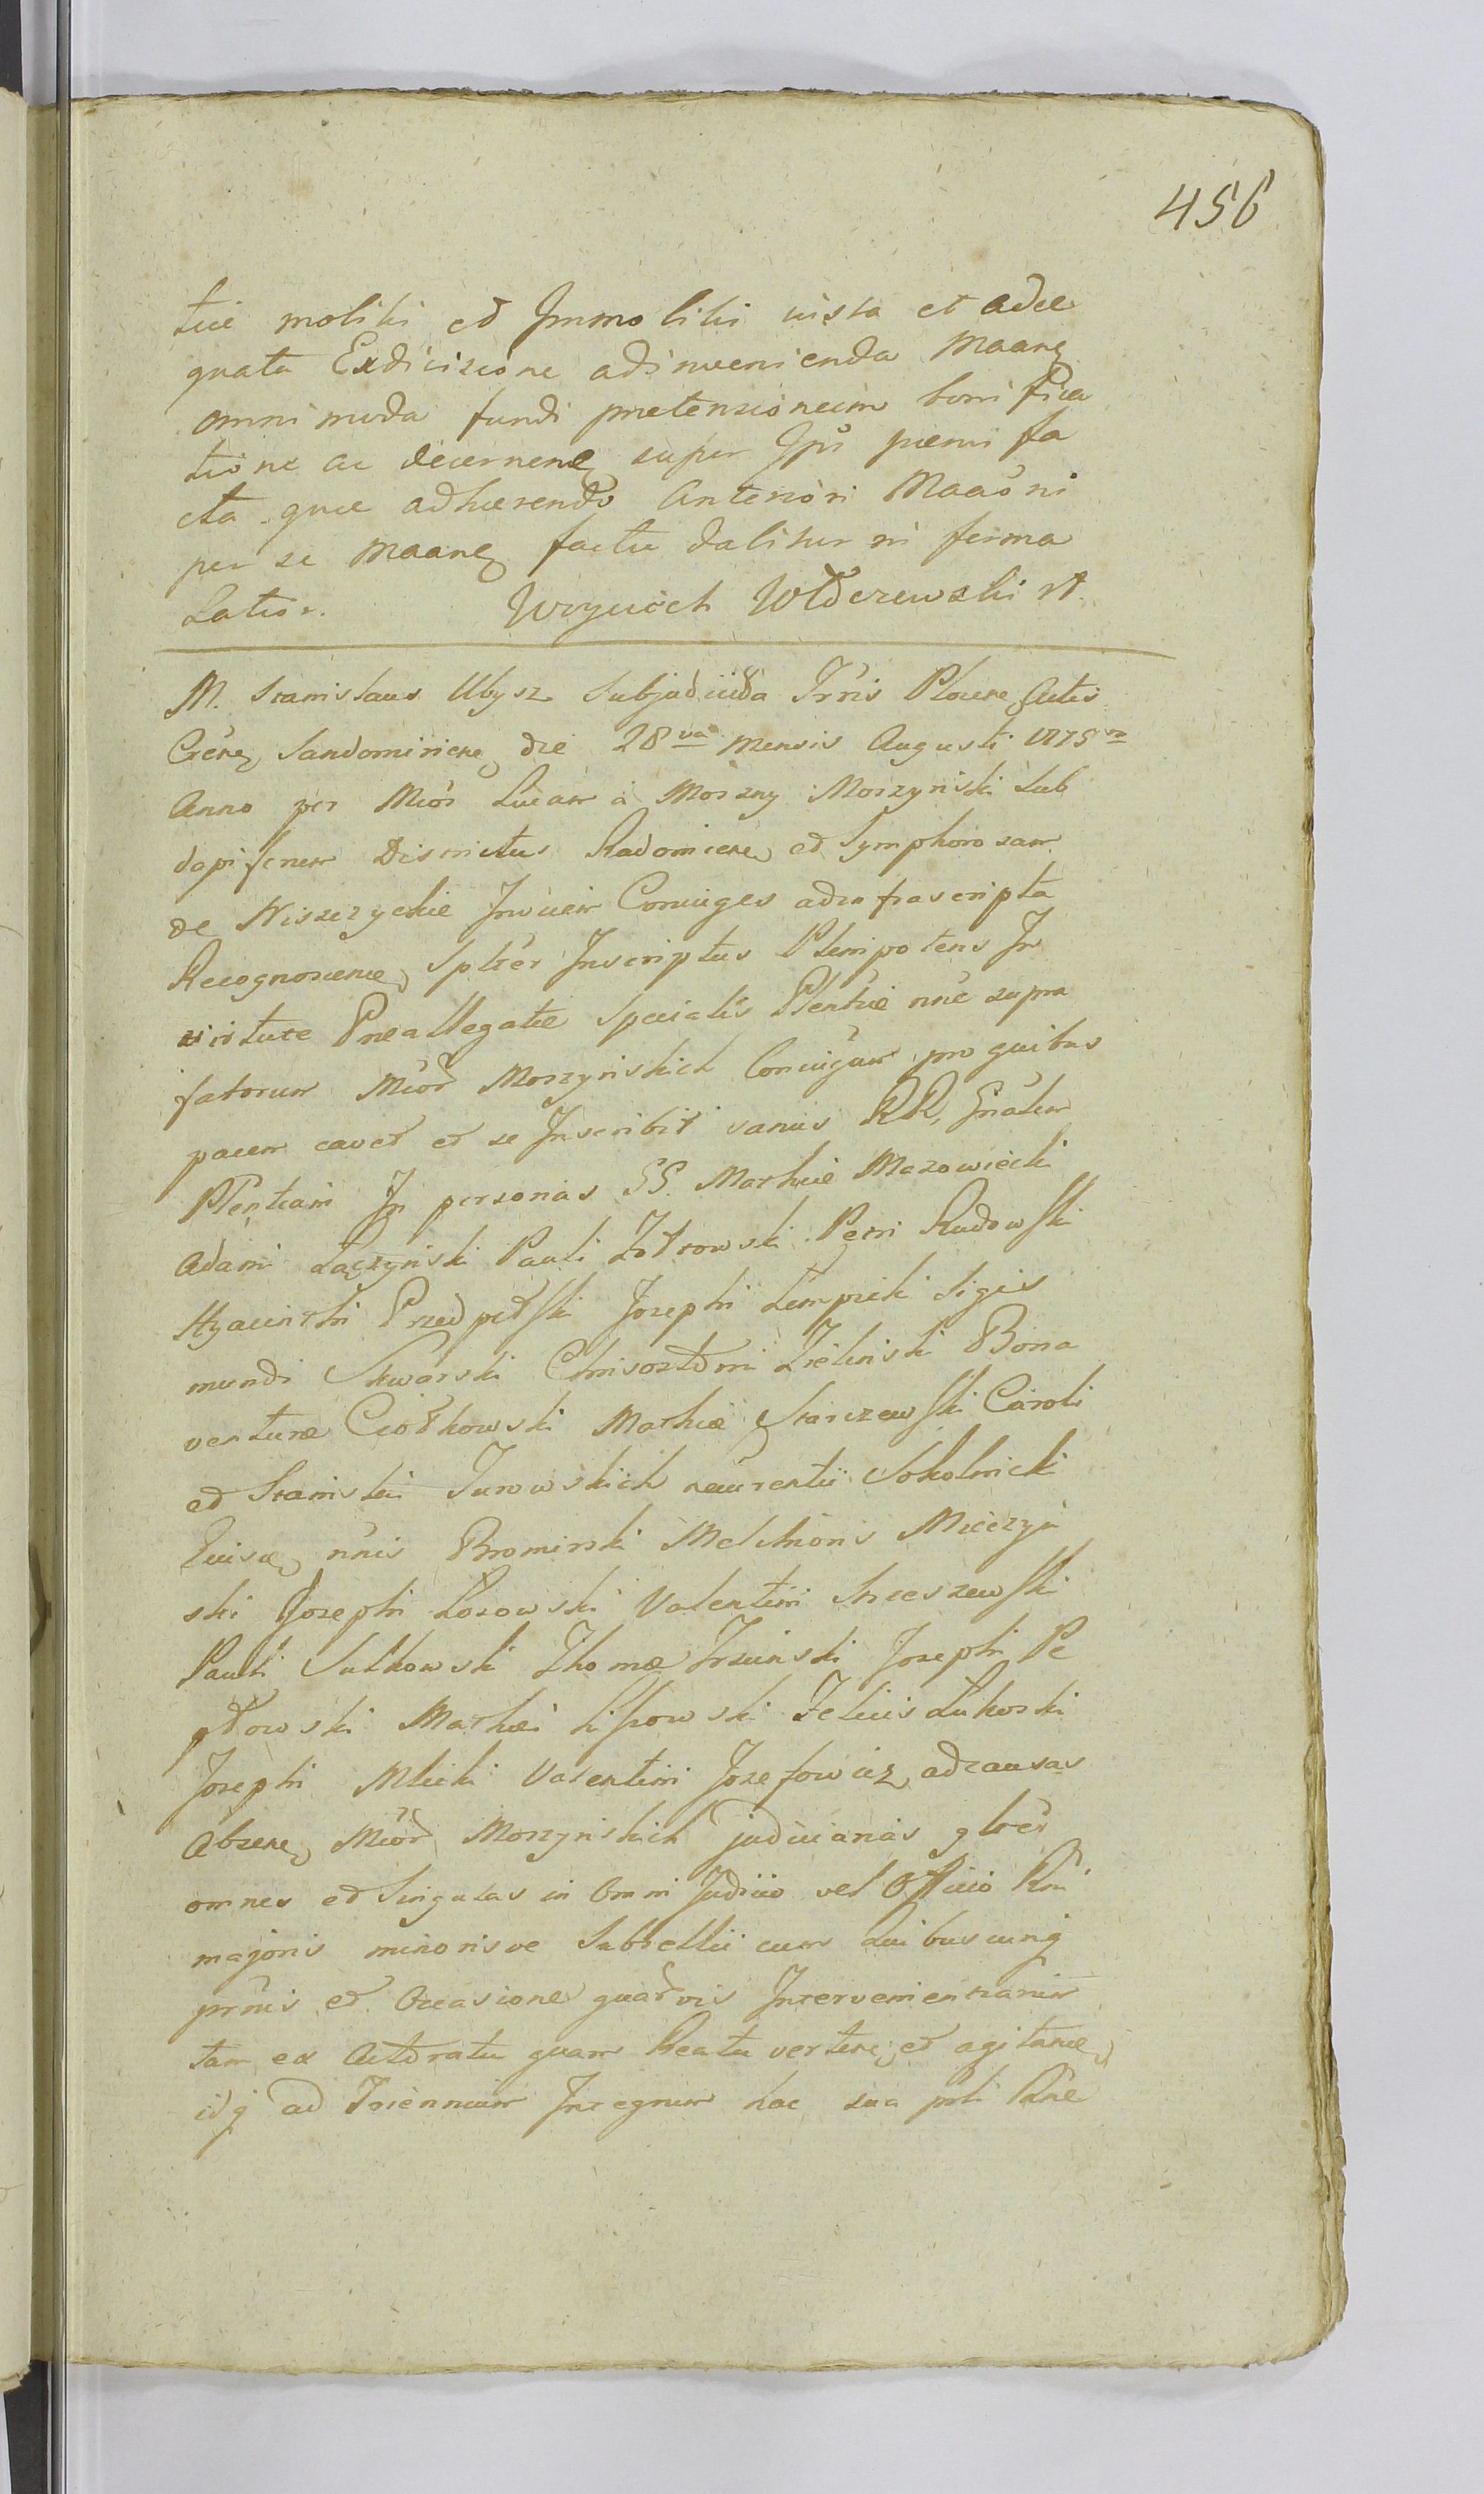 456
tue moliti et Immoliti iusta et adæ
quata Exdivisione adinvenienda Maanẽ
omnimoda fundi pretensionum bonifica
tione ac decernenẽ super Ipsi præmi fa
cta quæ adhærendo Anteriori Maaõni
per se Maanẽ facta dabitur in forma
Latior. Woyciech Wołczewski
M. Stanislaus Ubysz Subjudicida Trris Plocenẽ Actis
Crenẽ Sandomirienẽ die 28va mensis Augusti 1775to
Anno per Mcos Lucam a Morzny Morzynski Sub
dapiferum Districtus Radomienẽ et Symphorosam
de Niszczyckie Invicem Coniuges ad infrascripta
Recognoscenẽ Spltẽr Inscriptus Plenipotens In
virtute Præallegatæ Specialis Plentiæ nunc supra
fatorum Mcor Morzynskich Coniugum pro quibus
pacem cavet et se Inscribit sanus RR, Gnalem
Plentiam In personas GG. Mathiæ Mazowiecki
Adami Łączynski Pauli Żółtowski Petri Rudowski
Hyacinthi Przedpełski Josephi Lempicki Sigis
mundi Skwarski Chrisostomi Zieliński Bona
venturæ Ciołkowski Mathiæ Starczewski Caroli
et Stanislai Turowskich Laurentii Sokolnicki
Luisæ nris Bromirski Melchioris Mieczyń
ski Josephi Łosowski Valentini Strzeszewski
Pauli Sułkowski Thomæ Trzcinski Josephi Pe
głowski Mathæi Lissowski Felicis Łukoski
Josephi Mlicki Valentini Josefowicz, ad causas
Absenẽ Mcor Morzynskich judiciarias gltẽr
omnes et Singulas in Omni Judicio vel Officio Rni
majoris minorisve Subsellii cum Quibuscunq
prnis et Occasione quarvis Intervenientiarum
tam ex Actoratu quam Reatu vertenẽ et agitanẽ
idq ad Triennium Integrum hac sua pnti Rne